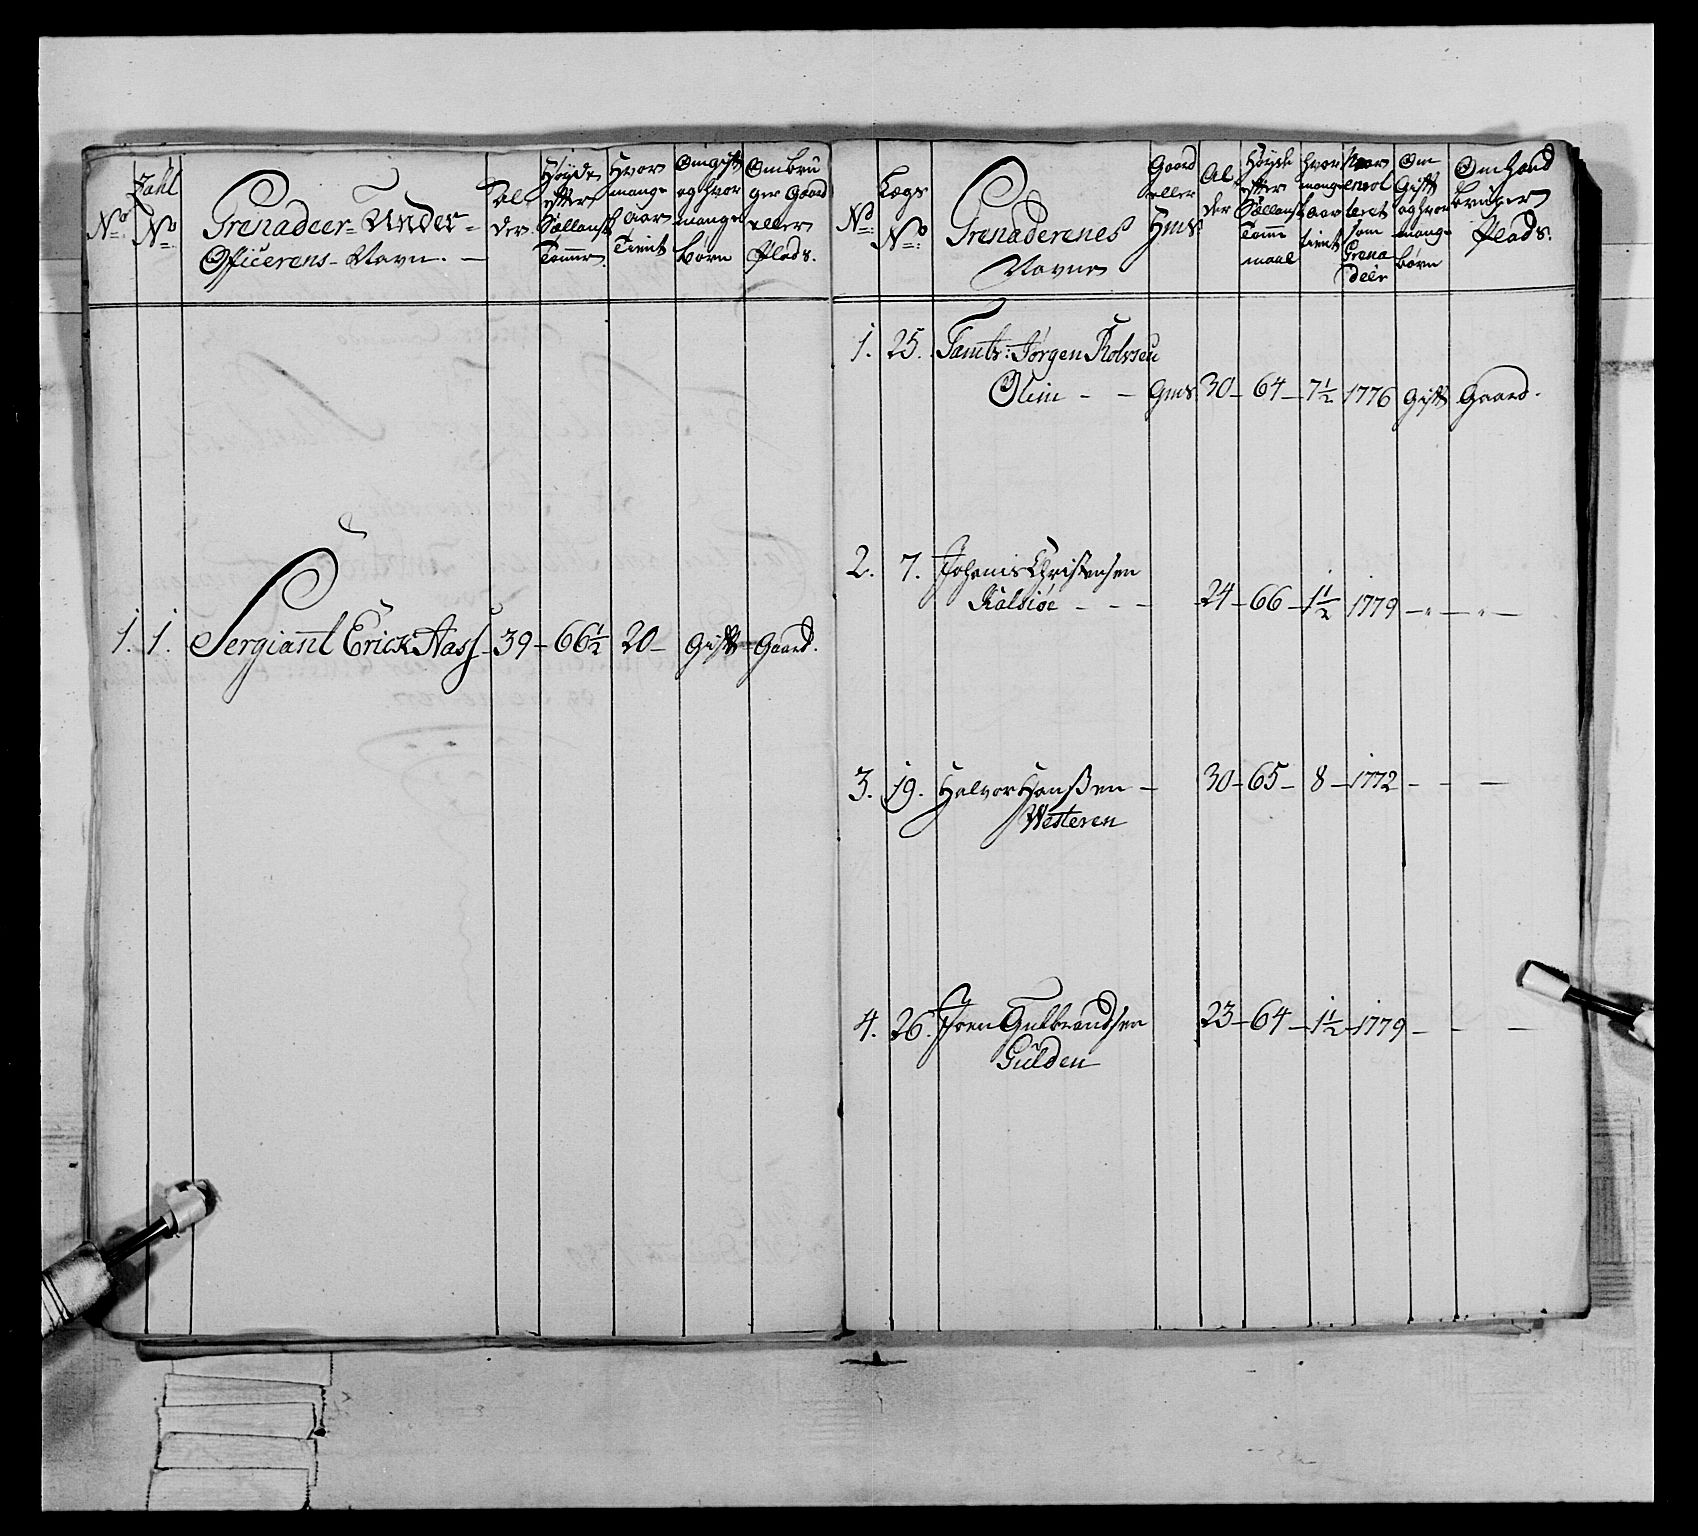 No
Zahl No
Grenadeer-Under-
Officerens-Navn.
Al
der
Høyde
efter
Sællansk
Tommer
Hvor
mange
Aar
Tient
Om gift
og hvor
mange
børn
Om bru
ger Gaard
eller
Plads.
1. 1. Sergiant Erick Aass 39 66½ 20 Gift Gaard.
No
Lægs
No
Grenaderenes
Navne
Gaard
eller
Hms
Al
der
Høyde
efter
Sællansk
Tomme
maal
hvor
mange
aar
tient
Naar
enrol
leret
som
Grena
deer
Om
Gift
og hvor
mange
børn
Om hand
bruger
Plads.
1. 25. Tambr: Jørgen Rolvsen
Olim - - Gms 30 64 7½ 1776 Gift Gaard.
2. 7. Johanis Christensen
Kalsiøe - - - 24 66 1½ 1779 - " - " -
3. 19. Halvor Hanßen - 30 65 8 1772 - - -
Westeren
4. 26. Joen Gulbrandsen 23 64 1½ 1779 - - -
Gulden